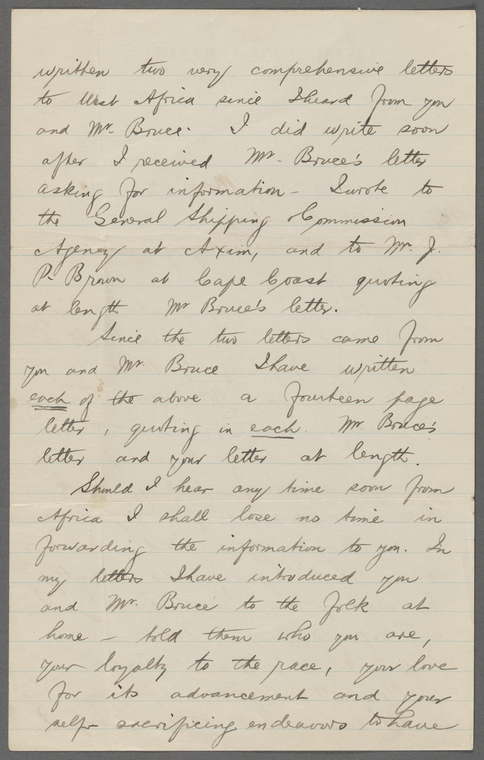 written two very comprehensive letters
to West Africa since I heard from you
and Mr. Bruce. I did write soon
after I received Mr. Bruce's letter
asking for information - I wrote to
the General Shipping & Commission
Agency at Axim, and to Mr. J.
P. Brown at Cape Coast quoting
at length Mr Bruce's letter.
Since the two letters came from
you and Mr. Bruce I have written
each of the above a fourteen page
letter, quoting in each Mr Bruce's
letter and your letter at length.
Should I hear any time soon from
Africa I shall lose no time in
forwarding the information to you. In
my letters I have introduced you
and Mr. Bruce to the folk at
home - told them who you are,
your loyalty to the race, your love
for its advancement and your
self sacrificing endeavors to have